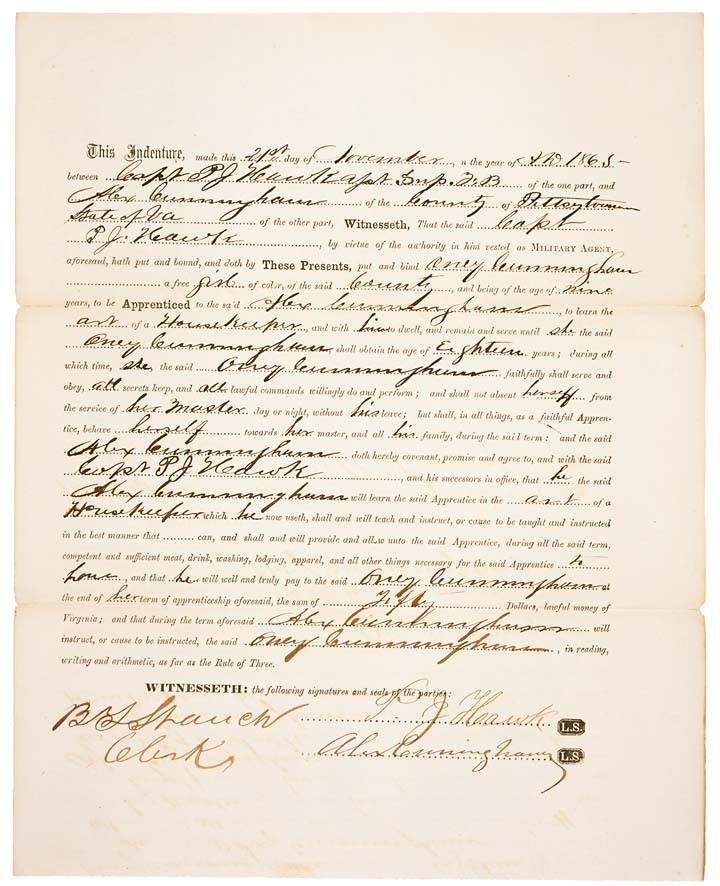 This Indenture, made this 21st day of November, n the year of AD 1865
between Capt P J Hawk apt Sup. F. B of the one part, and
Alex Cunningham of the County of Pittsylvania
State of Va of the other part, Witnesseth, That the said Capt
P. J. Hawk, by virtue of the authority in him vested as MILITARY AGENT,
aforesaid, hath put and bound, and doth by These Presents, put and bind Oney Cunningham
a free girl of color, of the said County, and being of the age of Nine
years, to be Apprenticed to the said Alex Cunningham, to learn the
art of a Housekeeper, and with him to dwell, and remain and serve until she the said
Oney Cunningham shall obtain the age of Eighteen years; during all
which time, she the said Oney Cunningham faithfully shall serve and
obey, all secrets keep, and all lawful commands willingly do and perform; and shall not absent herself from
the service of her Master day or night, without his leave; but shall, in all things, as a faithful Appren-
tice, behave herself towards her master, and all his family, during the said term: and the said
Alex Cunningham doth hereby covenant, promise and agree to, and with the said
Capt P. J Hawk, and his successors in office, that he the said
Alex Cunningham will learn the said Apprentice in the art of a
Housekeeper which he now useth, shall and will teach and instruct, or cause to be taught and instructed
in the best manner that can, and shall and will provide and allow unto the said Apprentice, during all the said term,
competent and sufficient meat, drink, washing, lodging, apparel, and all other things necessary for the said Apprentice to
have, and that he will well and truly pay to the said Oney Cunningham at
the end of her term of apprenticeship aforesaid, the sum of Fifty Dollars, lawful money of
Virginia; and that during the term aforesaid Alex Cunningham will
instruct, or cause to be instructed, the said Oney Cunningham, in reading,
writing and arithmetic, as far as the Rule of Three.
WITNESSETH: the following signatures and seals of the parties:
P J Hawk L.S.
Clerk Alex Cunningham L.S.